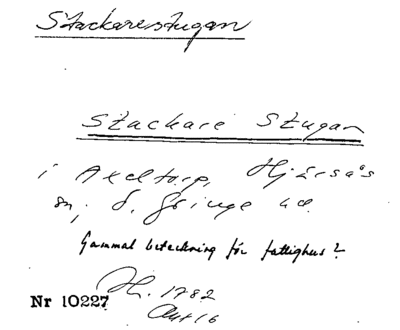 Stackarestugan
Stackare Stugan
i Axeltorp, Hjärsås
sn, Ö. Göinge hd.
Gammal beteckning för fattighus?
H. 1782
Nr 10227
Akt 16